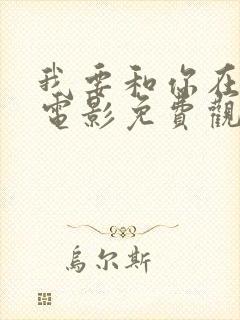 我要和你在
電影免費觀
烏尔斯